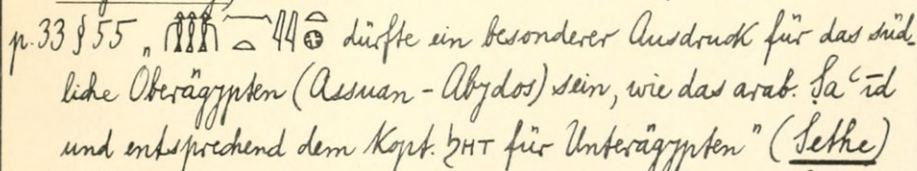 p. 33 § 55 „ dürfte ein besonderer Ausdruck für das süd-
liche Oberägypten (Assuan - Abydos) sein, wie das arab. Ṣaʿīd
und entsprechend dem Kopt. ϩⲏⲧ für Unterägypten" (Sethe)